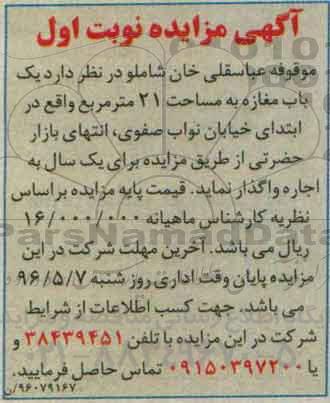 آگهی مزایده نوبت اول
موقوفه عباسقلی خان شاملو در نظر دارد یک
باب مغازه به مساحت ۲۱ مترمربع واقع در
ابتدای خیابان نواب صفوی، انتهای بازار
حضرتی از طریق مزایده برای یک سال به
اجاره واگذار نماید. قیمت پایه مزایده براساس
نظریه کارشناس ماهیانه ۱۶/۰۰۰/۰۰۰
ریال می باشد. آخرین مهلت شرکت در این
مزایده پایان وقت اداری روز شنبه ۹۶/۵/۷
می باشد. جهت کسب اطلاعات از شرایط
شرکت در این مزایده با تلفن ۳۸۴۳۹۴۵۱ و
یا ۰۹۱۵۰۳۹۷۲۰۰ تماس حاصل فرمایید.
۹۶۰۷۹۱۶۷/ن
ParsNamadData